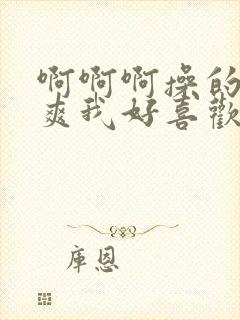 啊啊啊操的
爽我好喜歡
库恩